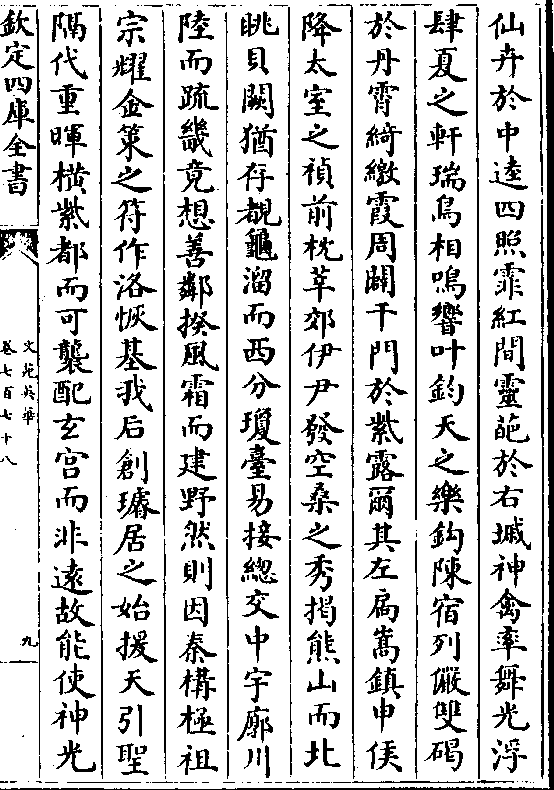 仙卉於中逵四照霏紅間靈葩於右墄神禽率舞光浮
肆夏之軒瑞鳥相鳴響叶鈞天之樂鈎陳宿列儼雙碣
於丹霄綺繳霞周闢千門於紫露爾其左扃嵩鎮申侯
降太室之禎前枕莘郊伊尹發空桑之秀揭熊山而北
眺貝闕猶存覩龜溜而西分瓊臺易接總交中宇廓川
陸而疏畿竟想善鄰揆風霜而建野然則因秦構極祖
宗耀金策之符作洛恢基我后創璿居之始援天引聖
隔代重暉橫紫都而可襲配玄宫而非遠故能使神光
欽定四庫全書
文苑英華
卷七百七十八
九